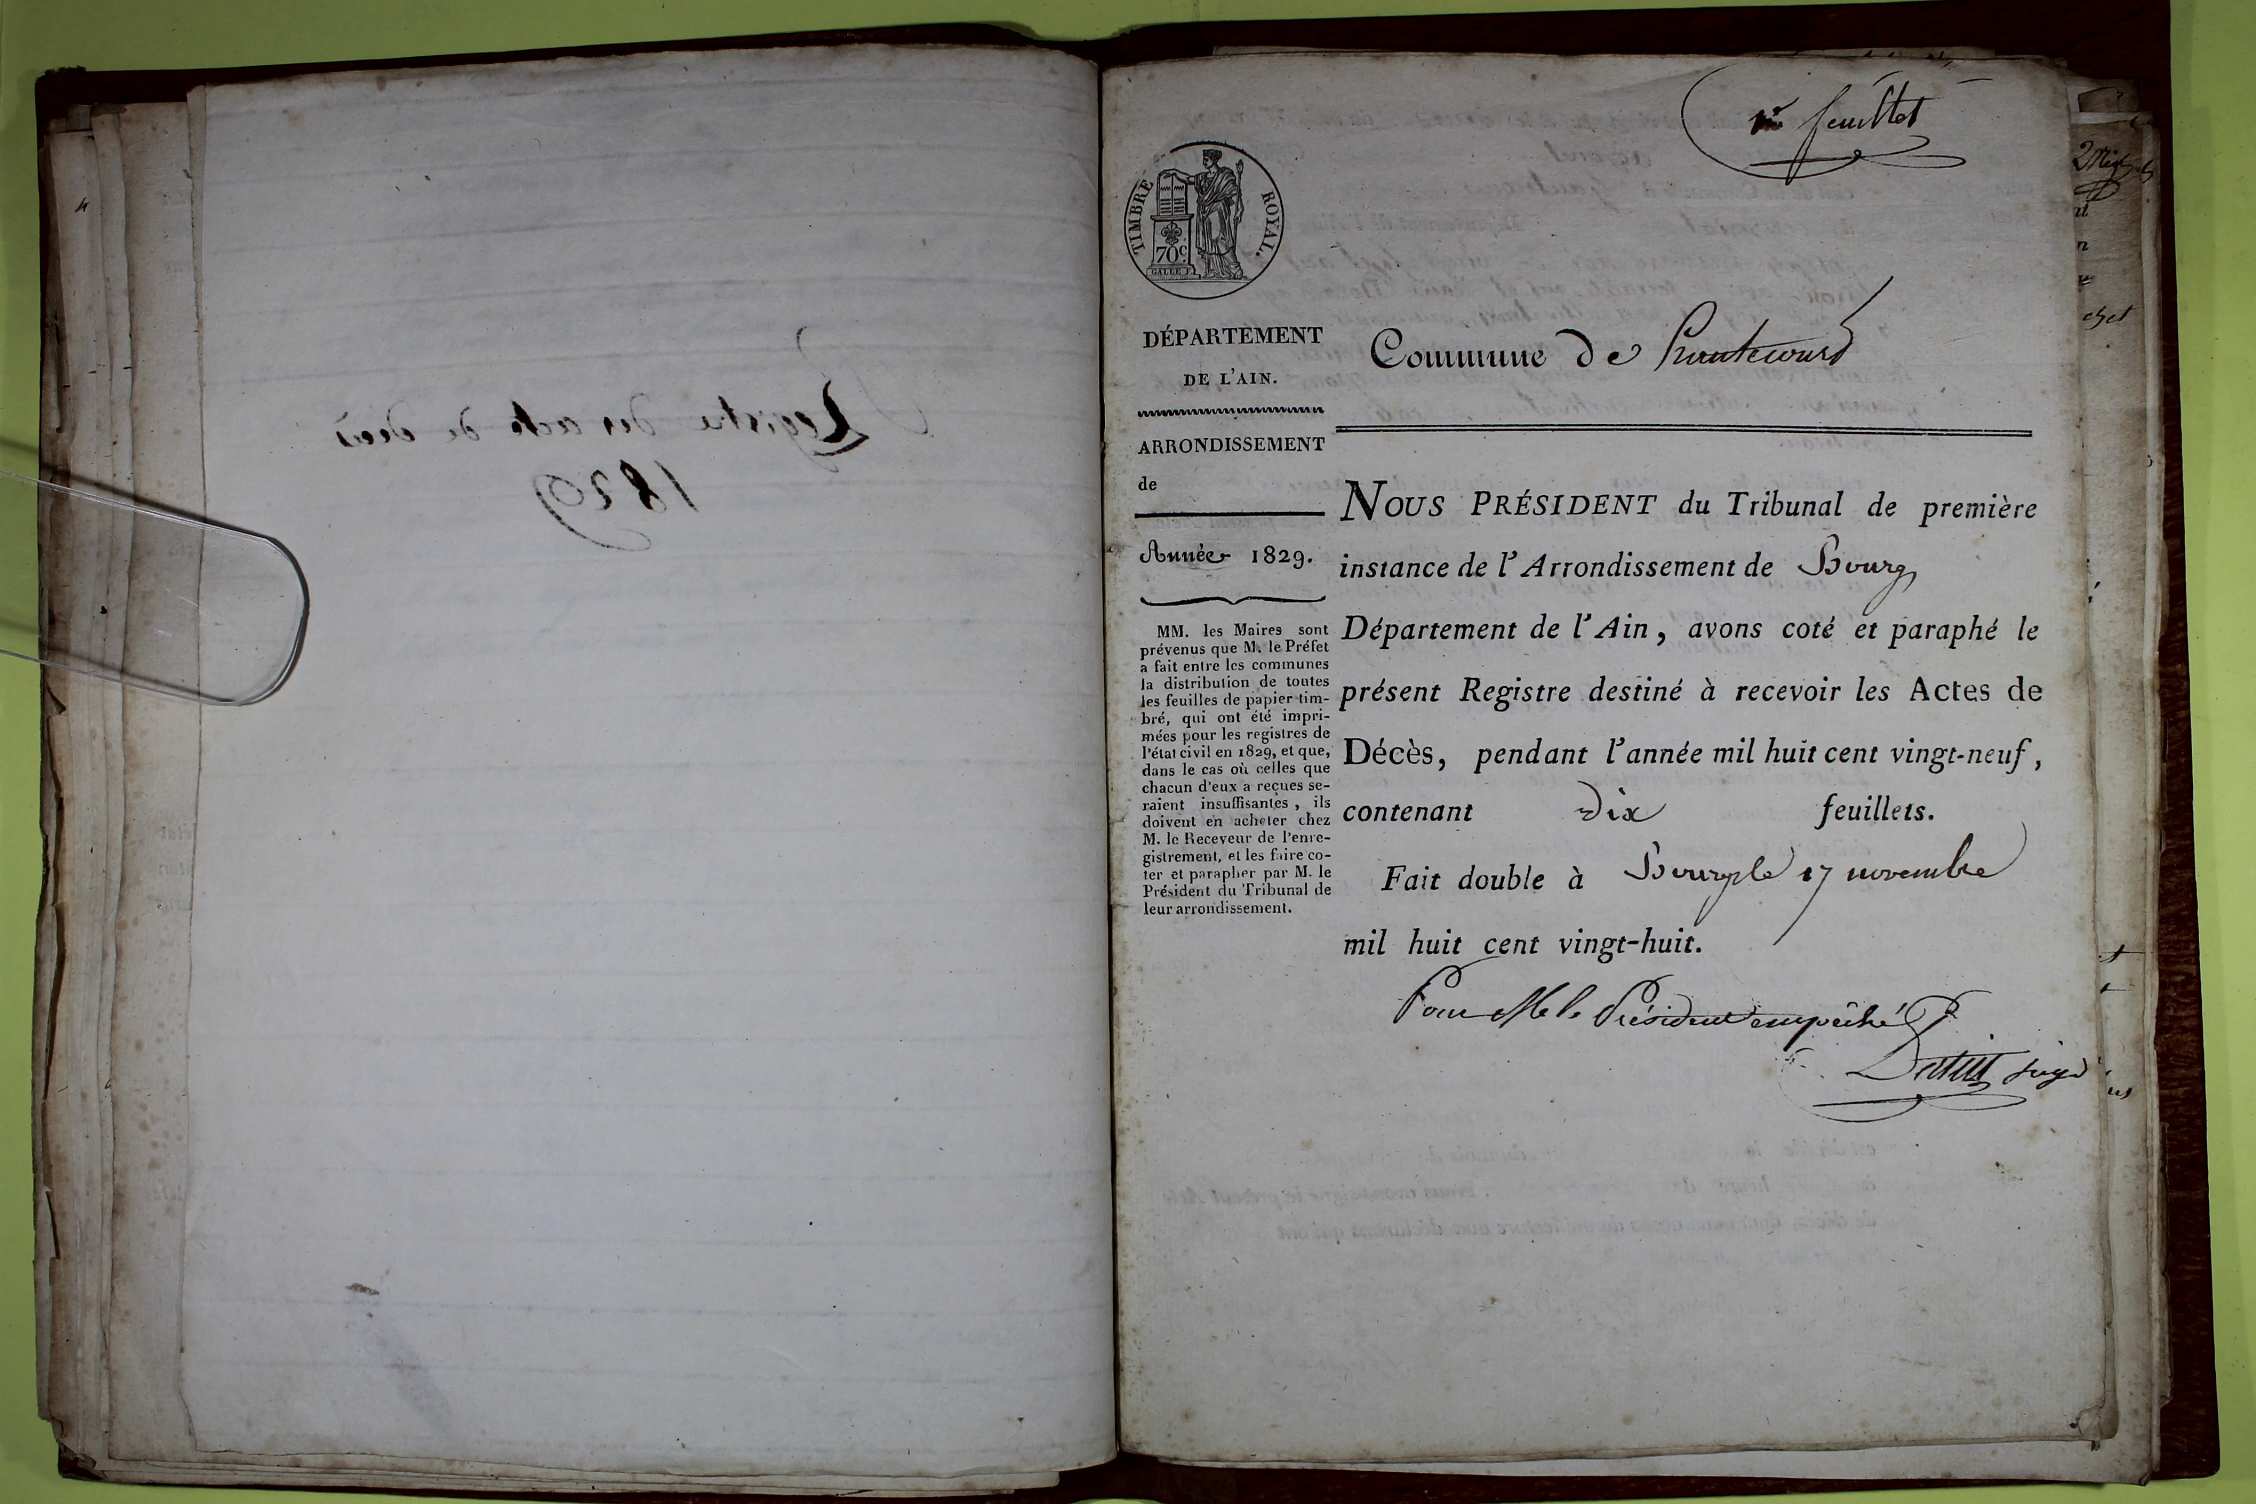 Registre des acte de décès
1829
1er feuillet
TIMBRE ROYAL.
70c.
GALLE F.
DÉPARTEMENT
DE L'AIN.
ARRONDISSEMENT
de
Année 1829.
MM. les Maires sont
prévenus que M. le Préfet
a fait entre les communes
la distribution de toutes
les feuilles de papier tim-
bré, qui ont été impri-
mées pour les registres de
l'état civil en 1829, et que,
dans le cas où celles que
chacun d'eux a reçues se-
raient insuffisantes, ils
doivent en acheter chez
M. le Receveur de l'enre-
gistrement, et les faire co-
ter et parapher par M. le
Président du Tribunal de
leur arrondissement.
Commune de
NOUS PRÉSIDENT du Tribunal de première
instance de l'Arrondissement de Bourg
Département de l'Ain, avons coté et paraphé le
présent Registre destiné à recevoir les Actes de
Décès, pendant l'année mil huit cent vingt-neuf,
contenant dix feuillets.
Fait double à Bourg le 17 novembre
mil huit cent vingt-huit.
Pour Mr le Président empêché
juge